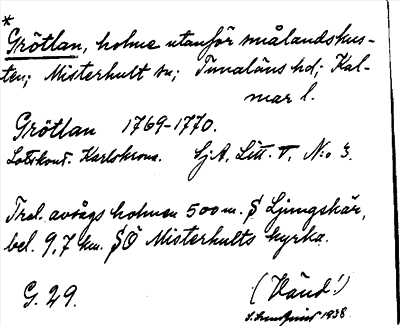 *
Grötlan, holme utanför smålandskus-
ten; Misterhult sn; Tunaläns hd; Kal-
mar l.
Grötlan 1769-1770.
Lotskont. Karlskrona. SjA, Litt. T, No 3.
Trol. avsågs holmen 500 m. S Ljungskär,
bel. 9,7 km. SÖ Misterhults kyrka.
G. 29.
(Vänd!)
1938